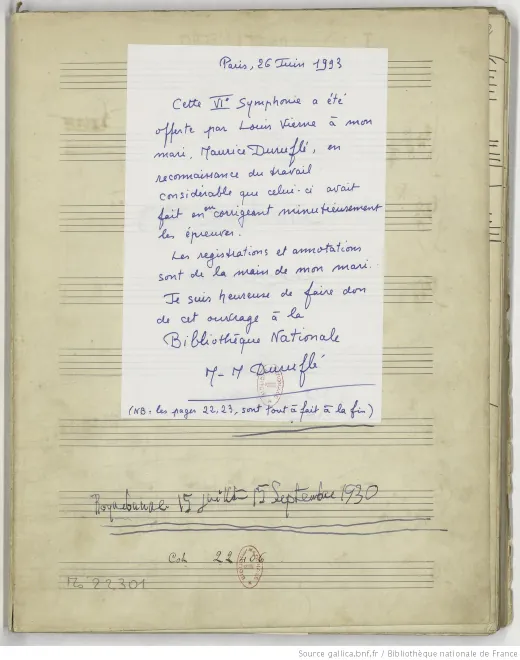 Paris, 26 Juin 1993
Cette VIe Symphonie a été
offerte par Louis Vierne à mon
mari, Maurice Duruflé, en
reconnaissance du travail
considérable que celui-ci avait
fait en en corrigeant minutieusement
les épreuves.
Les registrations et annotations
sont de la main de mon mari.
Je suis heureuse de faire don
de cet ouvrage à la
Bibliothèque Nationale
M-M Duruflé
(NB: les pages 22, 23, sont tout à fait à la fin)
15 juillet 15 Septembre 1930
22 406
22301
Source gallica.bnf.fr / Bibliothèque nationale de France